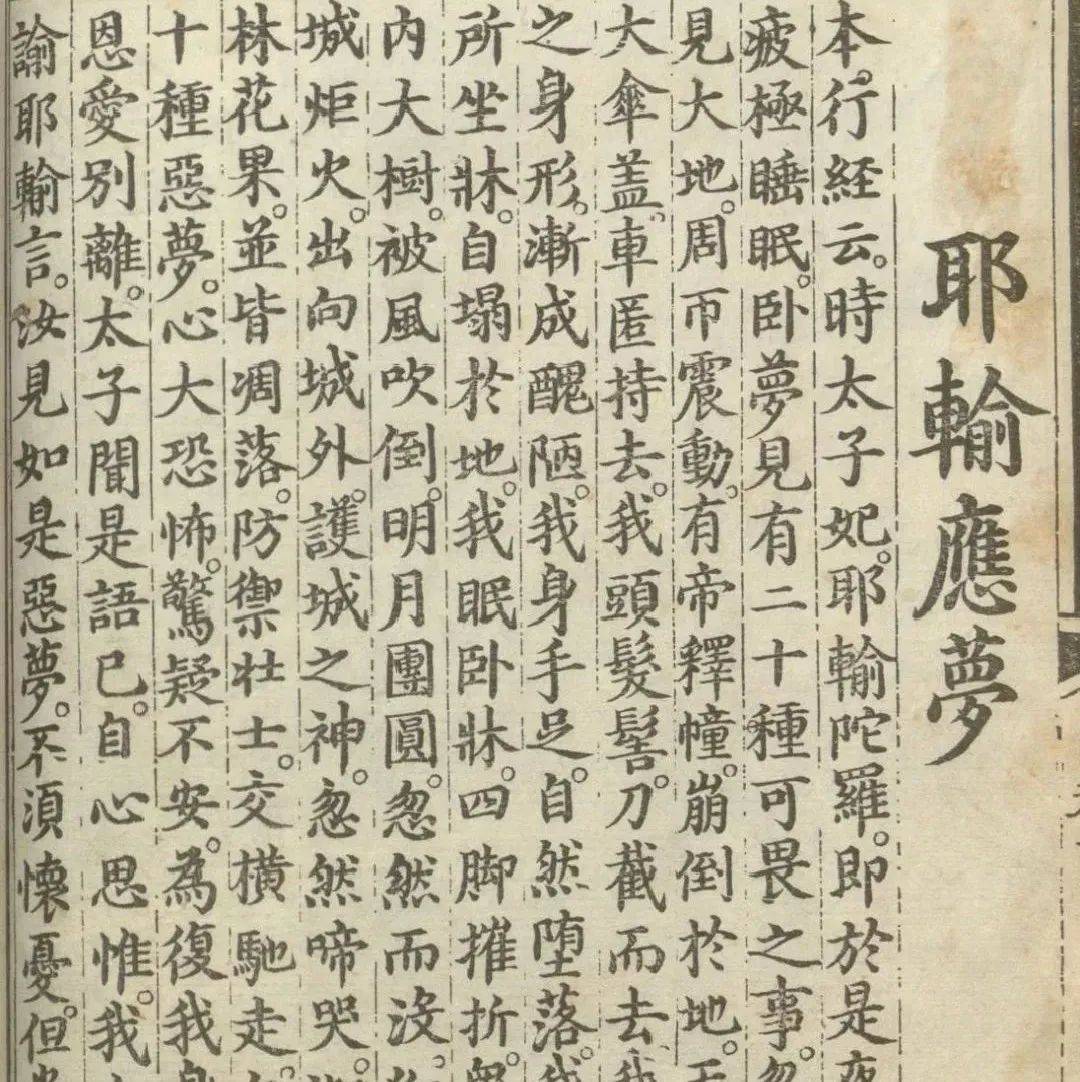 耶輸應夢
本行経云。時太子妃。耶輸陀羅。即於是夜
疲極睡眠。卧夢見有二十種可畏之事。忽
見大地。周帀震動。有帝釋幢。崩倒於地。天
大傘蓋。車匿持去。我頭髮髻。刀截而去
之身形。漸成醜陋。我身手足。自然堕落。我
所坐牀。自塌於地。我眠卧牀。四脚摧折。
内大樹。被風吹倒。明月團圓。忽然而沒
城炬火。出向城外。護城之神。忽然啼哭。
林花果。並皆凋落。防禦壮士。交橫馳走
十種惡夢。心大恐怖。驚疑不安。為復我身
恩愛別離。太子聞是語已。自心思惟。我
諭耶輸言。汝見如是惡夢。不須懷憂。但